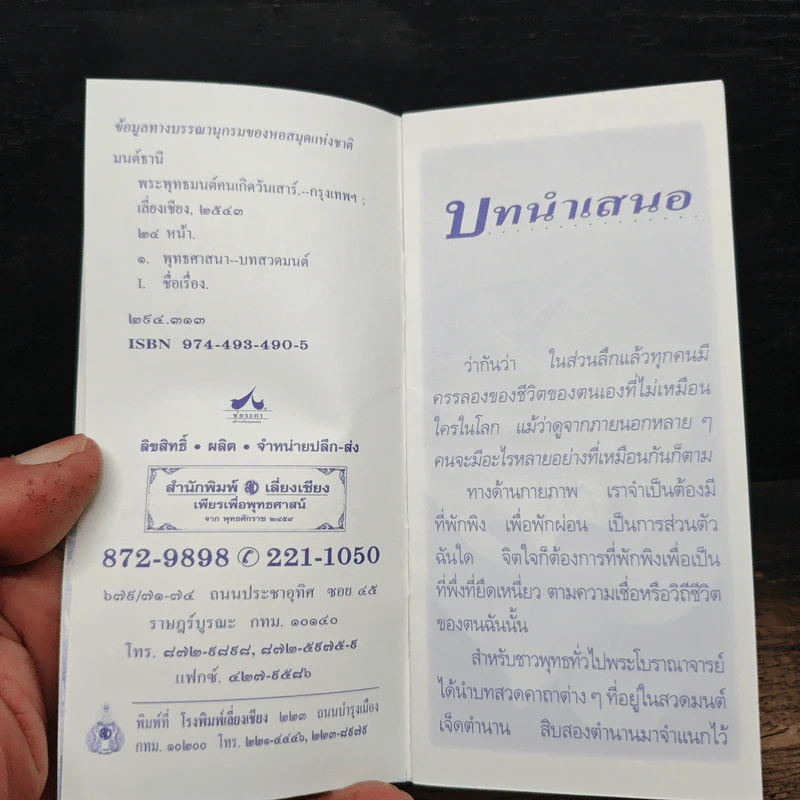 ข้อมูลทางบรรณานุกรมของหอสมุดแห่งชาติ
มนต์ธานี
พระพุทธมนต์คนเกิดวันเสาร์.--กรุงเทพฯ ;
เลี่ยงเชียง, ๒๕๔๓
๒๔ หน้า.
๑. พุทธศาสนา--บทสวดมนต์
I. ชื่อเรื่อง.
๒๙๔.๓๑๓
ISBN 974-493-490-5
ช่อระกา
ลิขสิทธิ์ • ผลิต • จำหน่ายปลีก-ส่ง
สำนักพิมพ์ เลี่ยงเชียง
เพียรเพื่อพุทธศาสน์
จาก พุทธศักราช ๒๔๕๙
872-9898 ✆ 221-1050
๖๗๙/๗๑-๗๔ ถนนประชาอุทิศ ซอย ๔๕
ราษฎร์บูรณะ กทม. ๑๐๑๔๐
โทร. ๘๗๒-๙๘๙๘, ๘๗๒-๕๙๗๕-๙
แฟกซ์. ๔๒๗-๙๕๘๖
พิมพ์ที่ โรงพิมพ์เลี่ยงเชียง ๒๒๓ ถนนบำรุงเมือง
กทม. ๑๐๒๐๐ โทร. ๒๒๑-๔๔๔๖, ๒๒๓-๘๙๗๙
บทนำเสนอ
ว่ากันว่า ในส่วนลึกแล้วทุกคนมี
ครรลองของชีวิตของตนเองที่ไม่เหมือน
ใครในโลก แม้ว่าดูจากภายนอกหลาย ๆ
คนจะมีอะไรหลายอย่างที่เหมือนกันก็ตาม
ทางด้านกายภาพ เราจำเป็นต้องมี
ที่พักพิง เพื่อพักผ่อน เป็นการส่วนตัว
ฉันใด จิตใจก็ต้องการที่พักพิงเพื่อเป็น
ที่พึ่งที่ยึดเหนี่ยว ตามความเชื่อหรือวิถีชีวิต
ของตนฉันนั้น
สำหรับชาวพุทธทั่วไปพระโบราณาจารย์
ได้นำบทสวดคาถาต่าง ๆ ที่อยู่ในสวดมนต์
เจ็ดตำนาน สิบสองตำนานมาจำแนกไว้